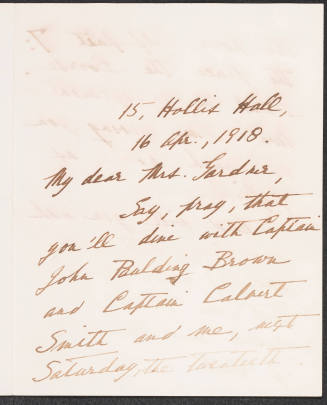 15, Hollis Hall,
16 Apr., 1918.
My dear Mrs. Gardner,
Say, pray, that
you'll dine with Captain
John Paulding Brown
and Captain Calvert
Smith and me, next
Saturday, the twentieth.